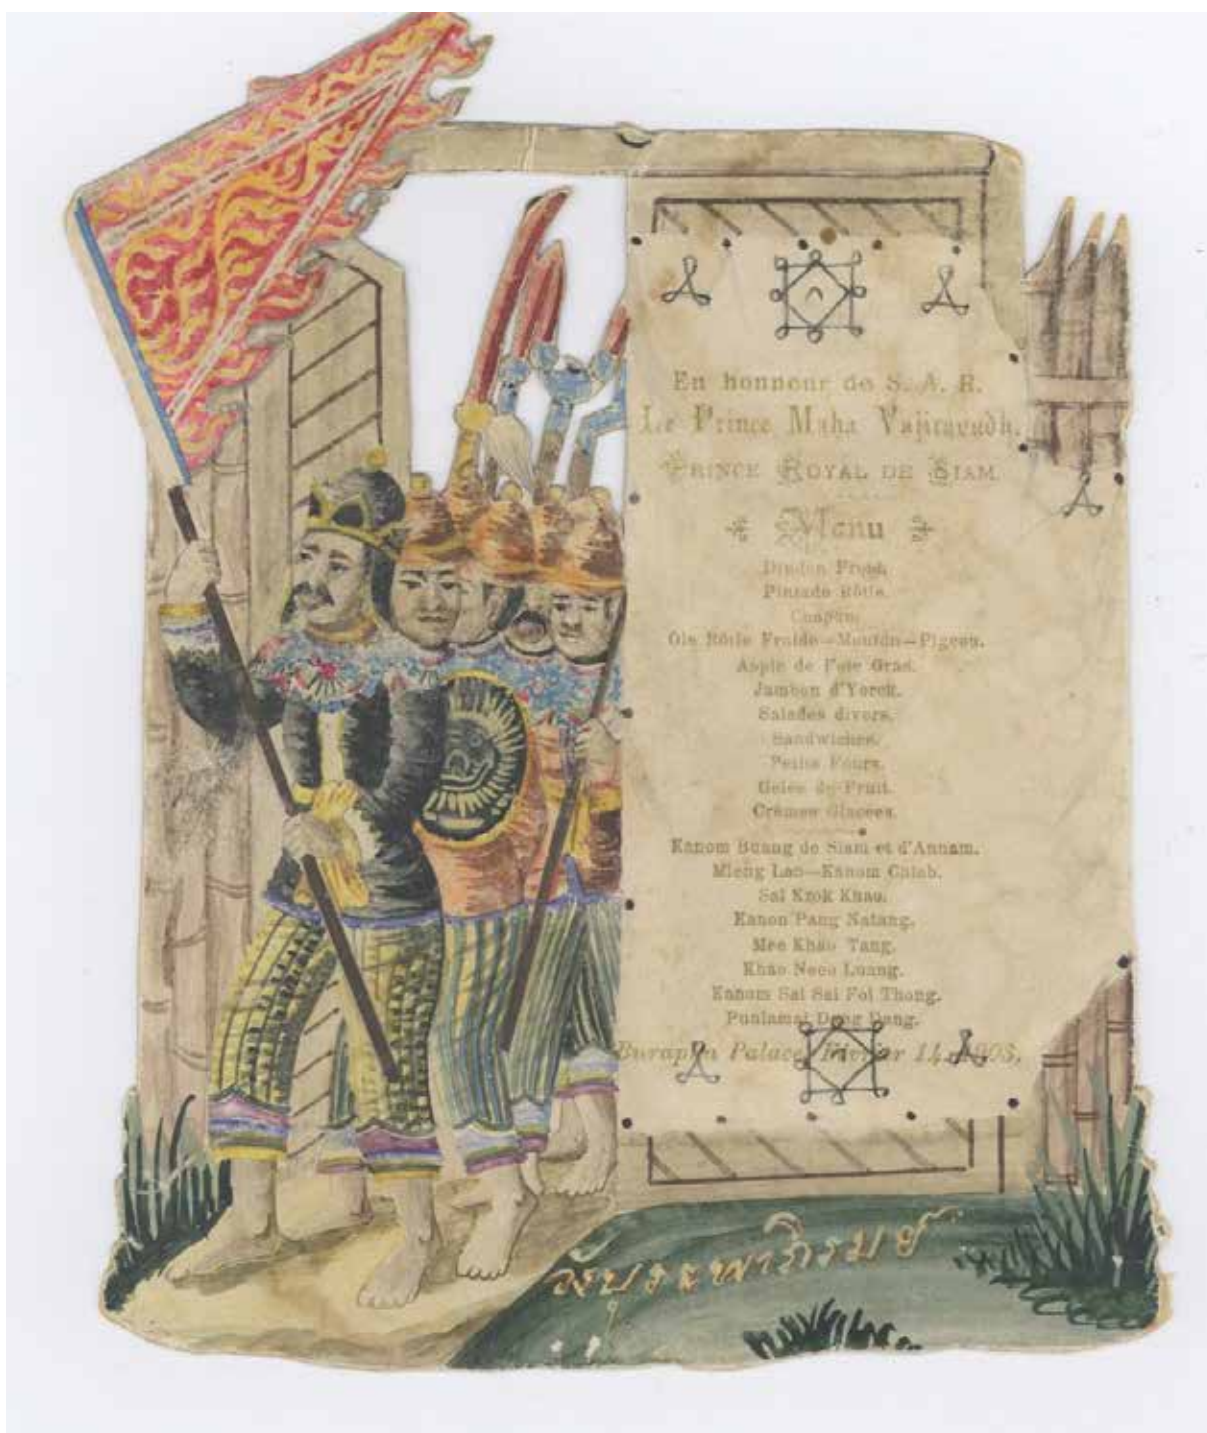 En honneur de S. A. R.
Le Prince Maha Vajiravudh.
PRINCE ROYAL DE SIAM.
Menu
Dindon Froid.
Pintade Rôtie.
Chapon.
Oie Rôtie Froide—Mouton—Pigeon.
Aspic de l'oie Gras.
Jambon d'Yorck.
Salades divers.
Sandwiches.
Petits Fours.
Gelée de Fruit.
Crêmes Glacées.
Kanom Buang de Siam et d'Annam.
Mieng Lao—Kanom Chieb.
Sai Krok Khao.
Kanon Pang Natang.
Mee Khao Tang.
Khao Neeo Luang.
Kanom Sai Sai Foi Thong.
Punlamai Dong Dang.
Burapha Palace, Février 14, 1903.
วังบุระพาภิรมย์